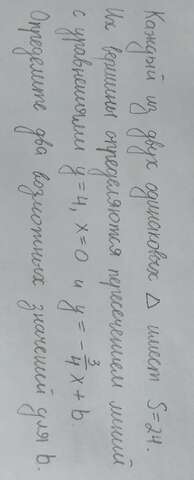 Каждый из двух одинаковых △ имеет S=24.
Их вершины определяются пересечением линий
с уравнениями y=4, x=0 и y=-3/4x+b.
Определите два возможных значений для b.